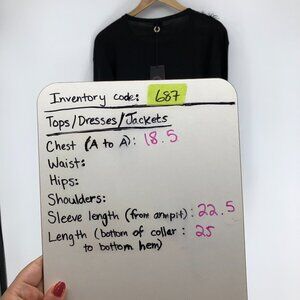 Inventory code: 687
Tops/Dresses/Jackets
Chest (A to A): 18.5
Waist:
Hips:
Shoulders:
Sleeve length (from armpit): 22.5
Length (bottom of collar : 25
to bottom hem)